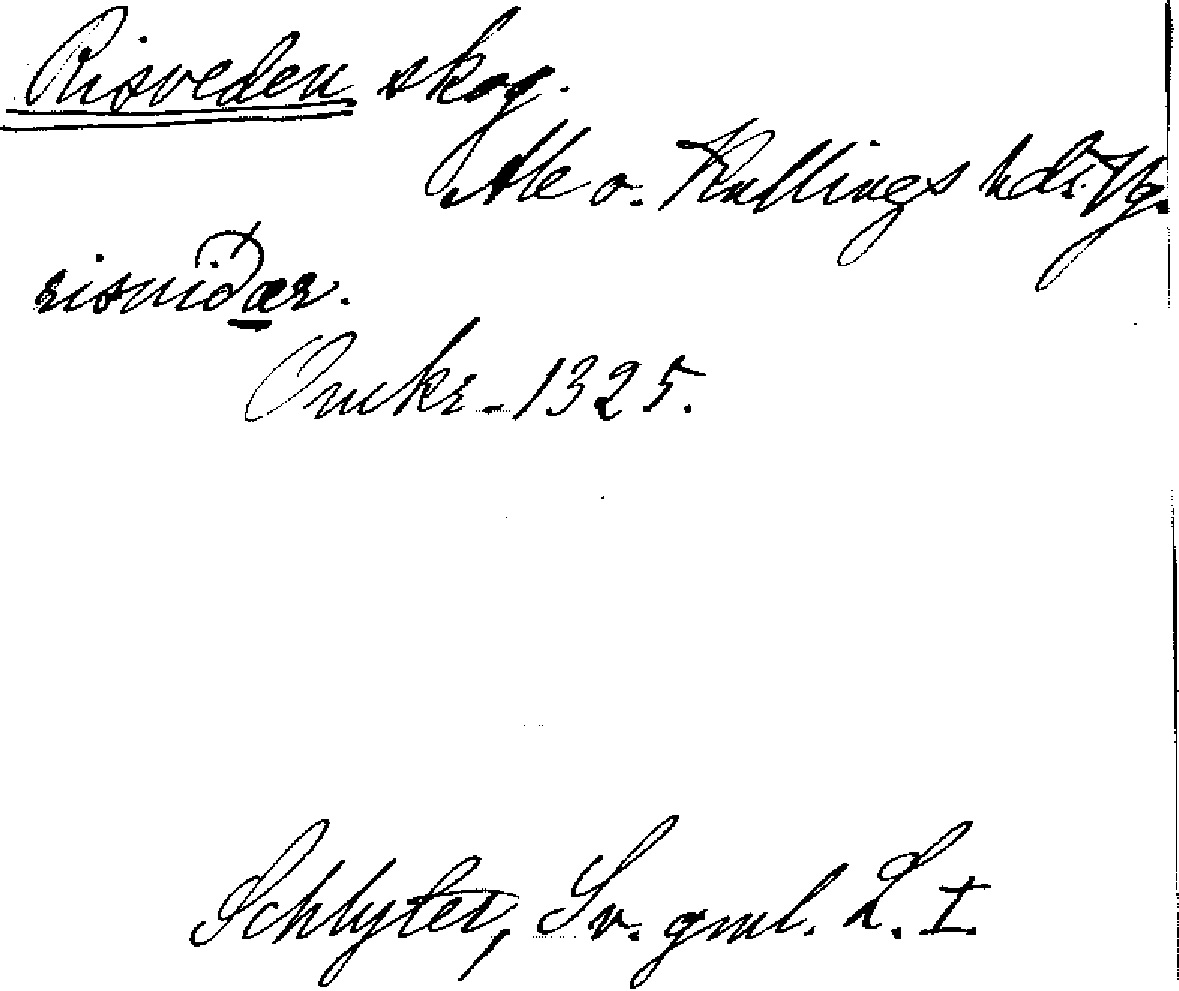 Risveden skog.
Ale o. Kullings hdr. Vg.
risuiðær.
Omkr. 1325.
Schlyter, Sv. gml. L. I.